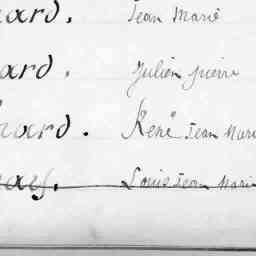 ard. Jean Marie
ard. Julien pierre
ard. René Jean Mari
Louis Jean Marie